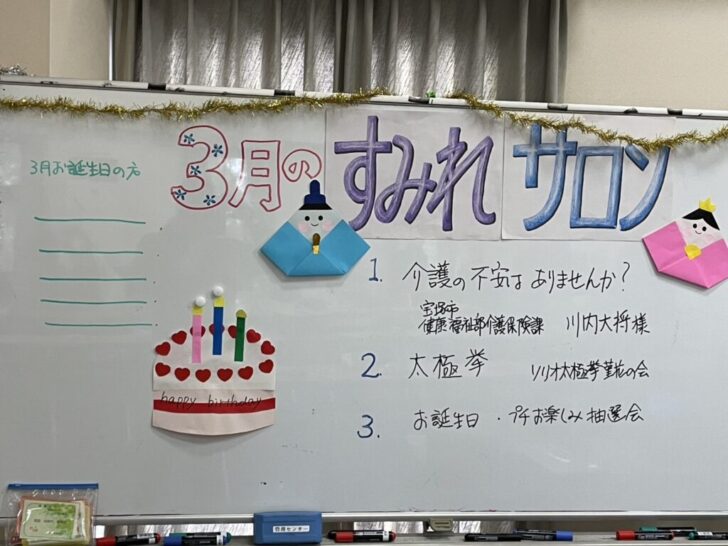 3月のすみれサロン
3月お誕生日の方
1. 介護の不安はありませんか?
健康福祉部介護保険課 川内大将様
2. 太極拳
リリオ太極拳の会
3. お誕生日・プチお楽しみ抽選会
happy birthday